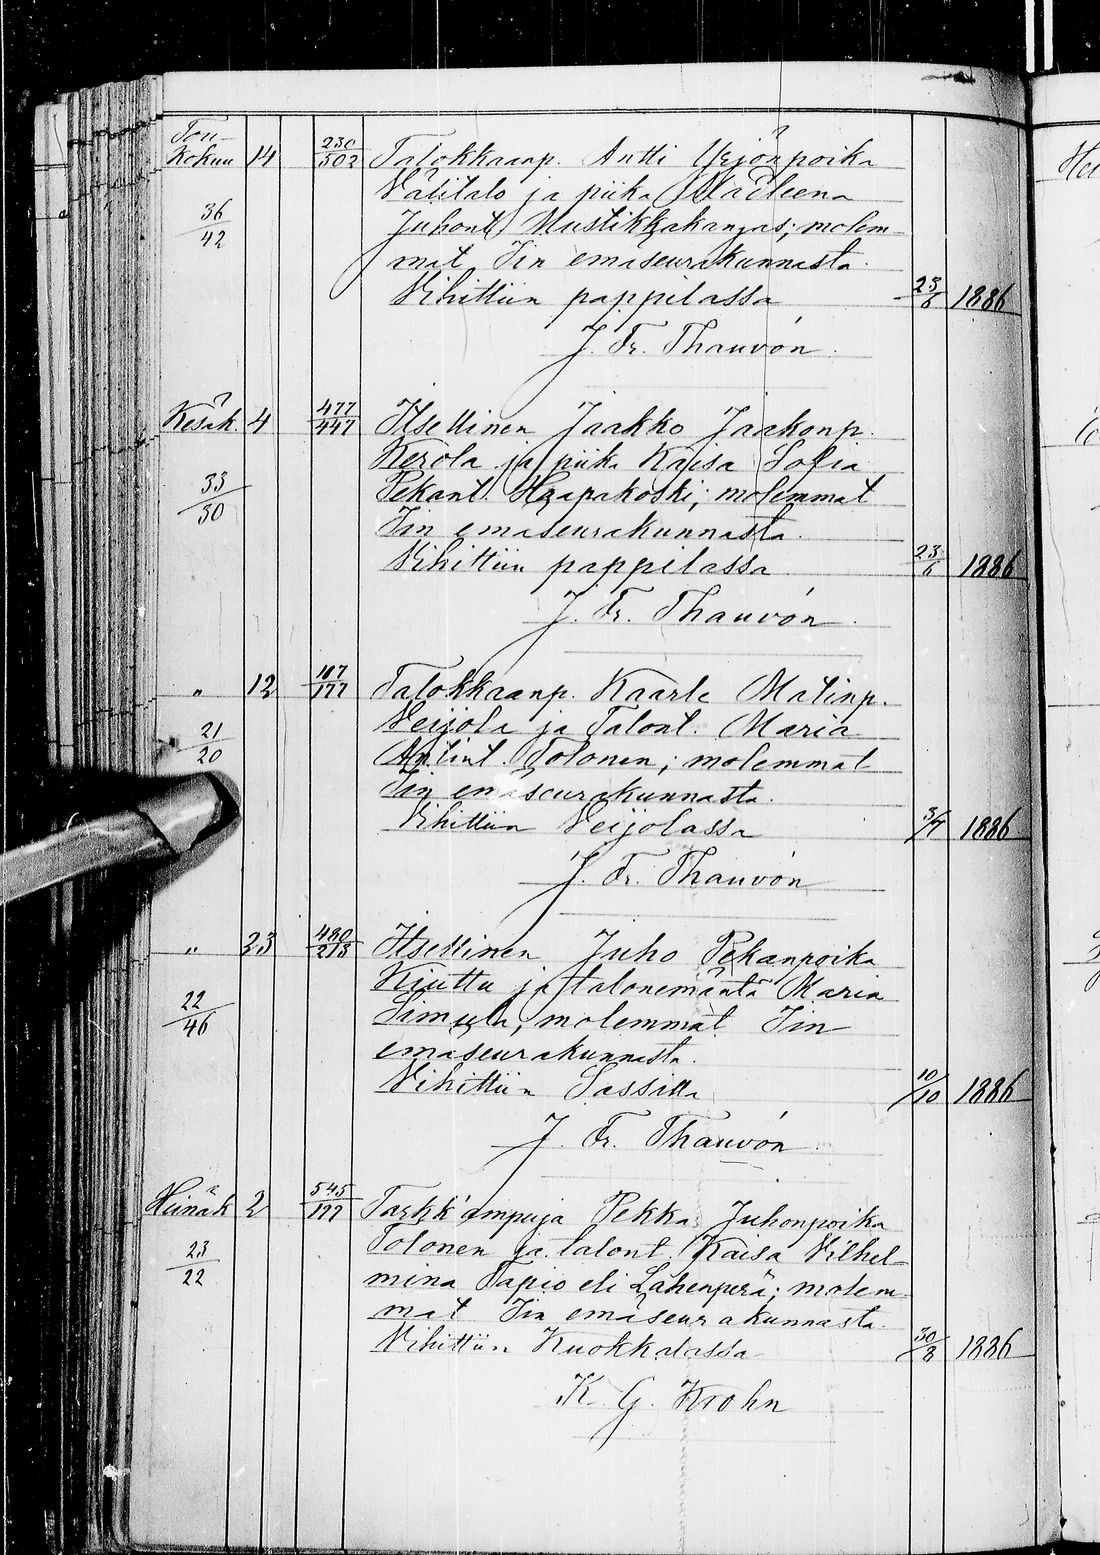 Tou-
kokuu 14 230/302 Talokkaanp. Antti Yrjönpoika
Välitalo ja piika Madleena
36/42 Juhont. Mustikkakangas; molem-
mat Iin emäseurakunnasta.
Vihittiin pappilassa 23/6 1886
J. Fr. Thauvón.
Kesäk. 4 477/447 Itsellinen Jaakko Jaakonp.
Kerola ja piika Kaisa Sofia
33/30 Pekant. Haapakoski; molemmat
Iin emäseurakunnasta.
Vihittiin pappilassa 23/6 1886
J. Fr. Thauvón.
" 12 107/177 Talokkaanp. Kaarle Matinp.
21/20 Veijola ja Talont. Maria
Antint. Tolonen; molemmat
Iin emäseurakunnasta.
Vihittiin Veijolassa 3/7 1886
J. Fr. Thauvón
" 23 480/213 Itsellinen Juho Pekanpoika
Kiuttu ja talonemäntä Maria
22/46 Simula, molemmat Iin
emäseurakunnasta.
Vihittiin Sassilla 10/10 1886
J. Fr. Thauvón.
Heinäk 2 545/177 Tarkk'ampuja Pekka Juhonpoika
23/22 Tolonen ja talont. Kaisa Vilhel-
mina Tapio eli Lahenperä; molem-
mat Iin emäseurakunnasta.
Vihittiin Kuokkalassa 30/8 1886
K. G. Krohn